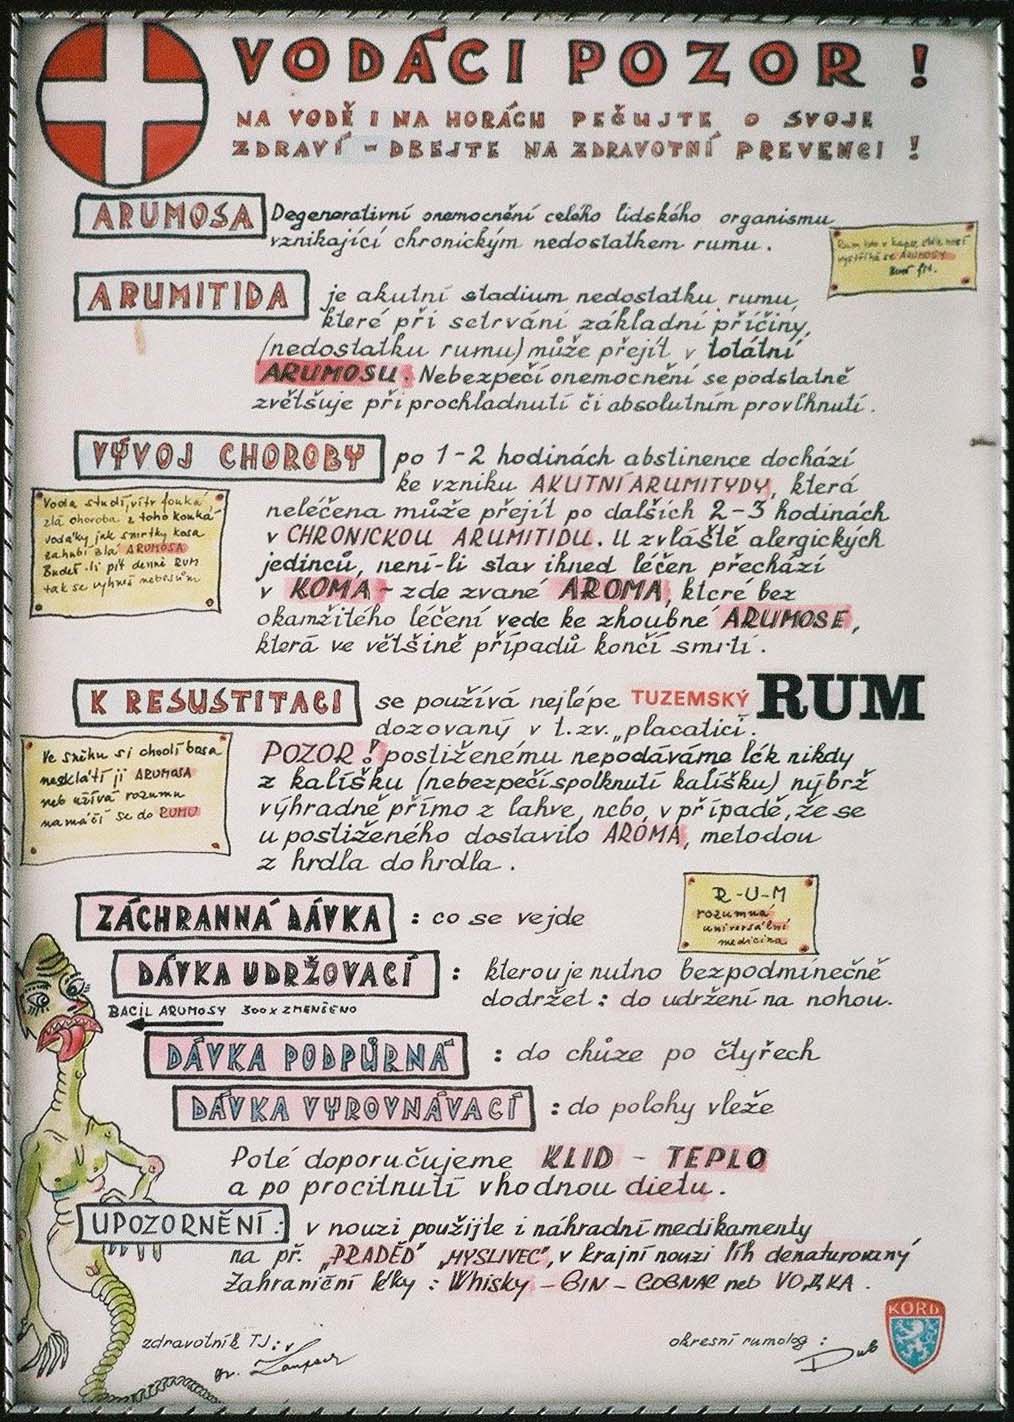 VODÁCI POZOR !
NA VODĚ I NA HORÁCH PEČUJTE O SVOJE
ZDRAVÍ - DBEJTE NA ZDRAVOTNÍ PREVENCI !
ARUMOSA Degenerativní onemocnění celého lidského organismu
vznikající chronickým nedostatkem rumu.
Rum
vystříhá se ARUMOSY
ARUMITIDA je akutní stadium nedostatku rumu,
které při setrvání základní příčiny,
(nedostatku rumu) může přejít v totální
ARUMOSU. Nebezpečí onemocnění se podstatně
zvětšuje při prochladnutí či absolutním provlhnutí.
VÝVOJ CHOROBY po 1-2 hodinách abstinence dochází
ke vzniku AKUTNÍ ARUMITYDY, která
neléčena může přejít po dalších 2-3 hodinách
v CHRONICKOU ARUMITIDU. U zvláště alergických
jedinců, není-li stav ihned léčen přechází
v KOMA - zde zvané AROMA, které bez
okamžitého léčení vede ke zhoubné ARUMOSE,
která ve většině případů končí smrtí.
Voda studí, vítr fouká
zlá choroba z toho kouká
vodáky jak smrtky kosa
zahubí zlá ARUMOSA
Budeš-li pít denně RUM
tak se vyhneš nebesům
K RESUSTITACI se používá nejlépe TUZEMSKÝ RUM
dozovaný v t.zv. „placatici.
POZOR ! postiženému nepodáváme lék nikdy
z kalíšku (nebezpečí spolknutí kalíšku) nýbrž
výhradně přímo z lahve, nebo, v případě, že se
u postiženého dostavilo AROMA, metodou
z hrdla do hrdla.
Ve sněhu si chodí bosa
neskláti ji ARUMOSA
neb užívá rozumu
namáčí se do RUMU
ZÁCHRANNÁ DÁVKA : co se vejde
R-U-M
rozumná
universální
medicina
DÁVKA UDRŽOVACÍ : kterou je nutno bezpodmínečně
dodržet : do udržení na nohou.
BACIL ARUMOSY 300x ZMENŠENO
DÁVKA PODPŮRNÁ : do chůze po čtyřech
DÁVKA VYROVNÁVACÍ : do polohy vleže
Poté doporučujeme KLID - TEPLO
a po procitnutí vhodnou dietu.
UPOZORNĚNÍ: v nouzi použijte i náhradní medikamenty
na př. „PRADĚD" „MYSLIVEC", v krajní nouzi líh denaturovaný
Zahraniční léky : Whisky - GIN - COGNAC neb VODKA.
zdravotník TJ : v
okresní rumolog :
Dub
KORD